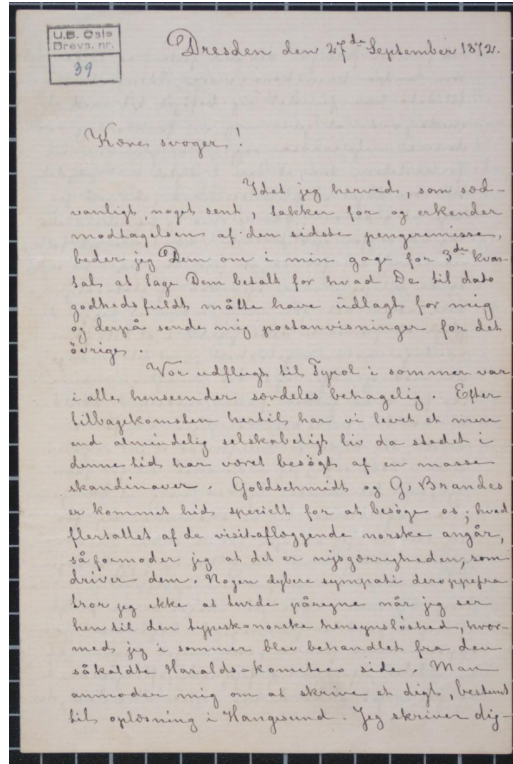 U.B. Oslo
Brevs. nr.
39
Dresden den 27de September 1872.
Kære svoger!
Idet jeg herved, som sæd-
vanligt, noget sent, takker for og erkender
modtagelsen af den sidste pengeremisse,
beder jeg Dem om i min gage for 3de kvar-
tal at tage Dem betalt for hvad De til dato
godhedsfuldt måtte have udlagt for mig
og derpå sende mig postanvisninger for det
øvrige.
Vor udflugt til Tyrol i sommer var
i alle henseender særdeles behagelig. Efter
tilbagekomsten hertil har vi levet et mere
end almindelig selskabeligt liv da stedet i
denne tid har været besøgt af en masse
skandinaver. Goldschmidt og G. Brandes
er kommet hid specielt for at besøge os; hvad
flertallet af de visit-aflæggende norske angår,
så formoder jeg at det er nysgærrigheden, som
driver dem. Nogen dybere sympati deroppefra
tror jeg ikke at turde påregne når jeg ser
hen til den typisk-norske hensynsløshed, hvor-
med jeg i sommer blev behandlet fra den
såkaldte Haralds-komitees side. Man
anmoder mig om at skrive et digt, bestemt
til oplæsning i Haugesund. Jeg skriver dig-